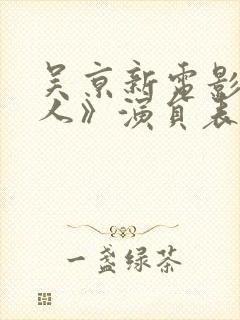 吴京新电影
人》演员表
一盏绿茶